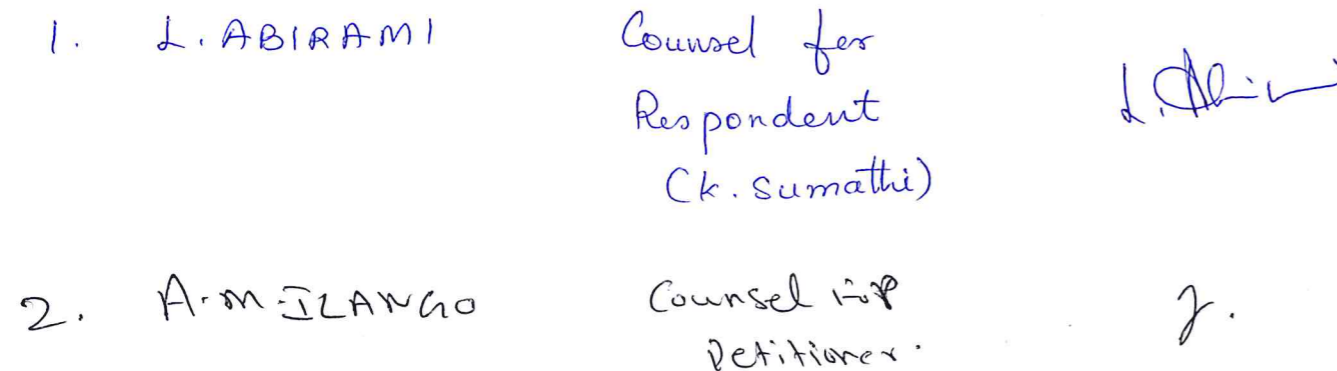 1. L. ABIRAMI Counsel for
Respondent
(K. Sumathi)
2. A.M. ILANGO Counsel for
Petitioner.